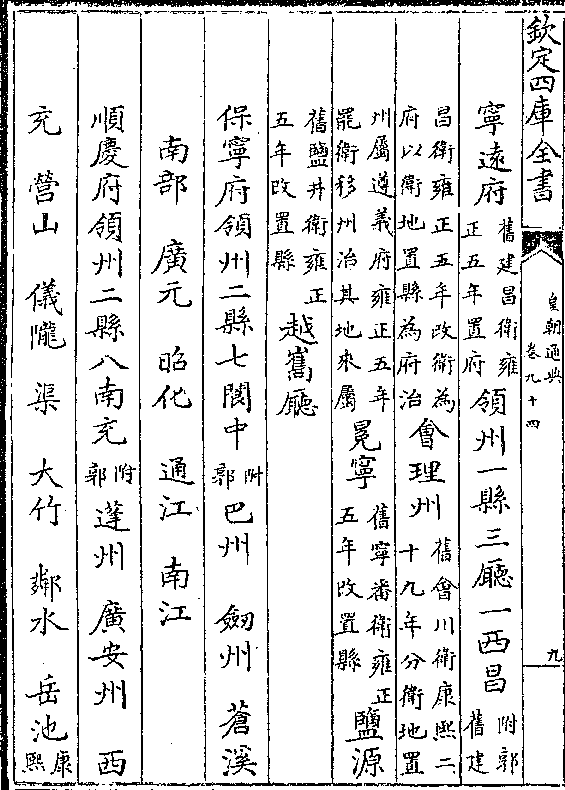 欽定四庫全書 皇朝通典 卷九十四 九
寧遠府 舊建昌衛雍正五年置府 領州一縣三廳一西昌 附郭舊建
昌衛雍正五年改衛為府以衛地置縣為府治 會理州 舊會川衛康熙二十九年分衛地置
州屬遵義府雍正五年罷衛移州治其地來屬 冕寧 舊寧番衛雍正五年改置縣 鹽源
舊鹽井衛雍正五年改置縣 越巂廳
保寧府領州二縣七閬中 附郭 巴州 劒州 蒼溪
南部 廣元 昭化 通江 南江
順慶府領州二縣八南充 附郭 蓬州 廣安州 西
充 營山 儀隴 渠 大竹 鄰水 岳池 康熙